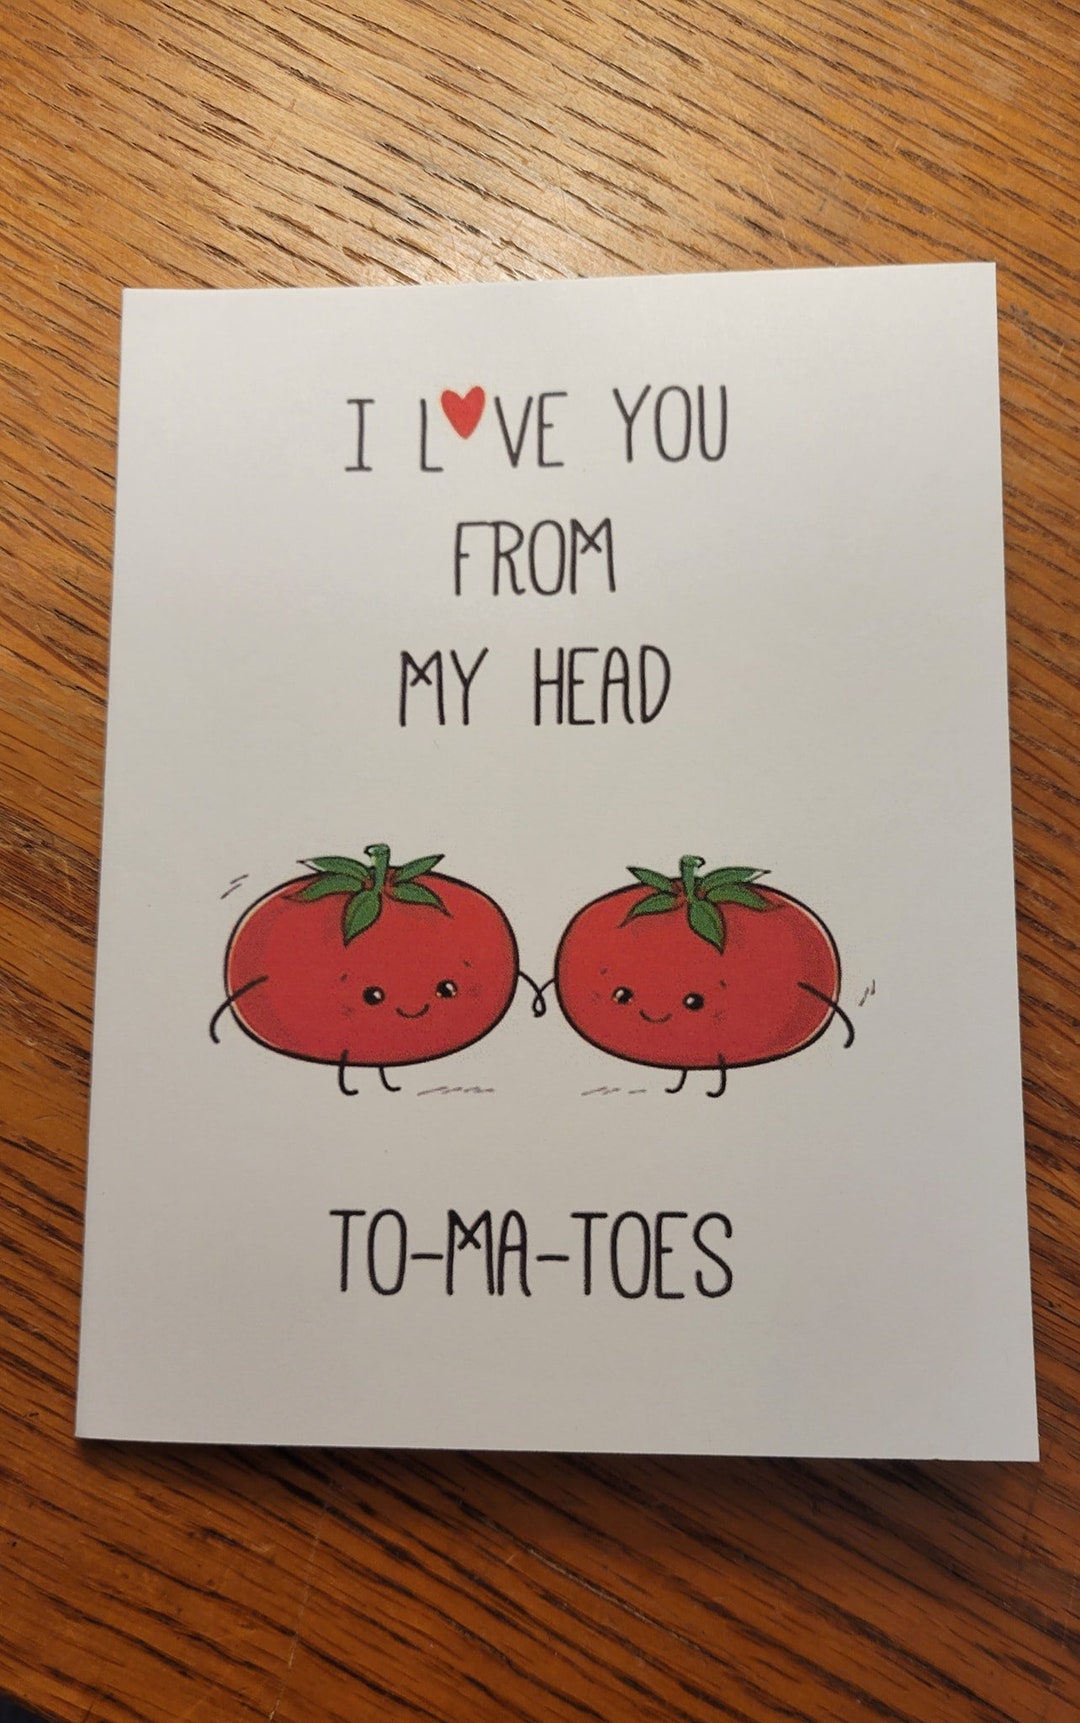 I L♥VE YOU
FROM
MY HEAD
TO-MA-TOES